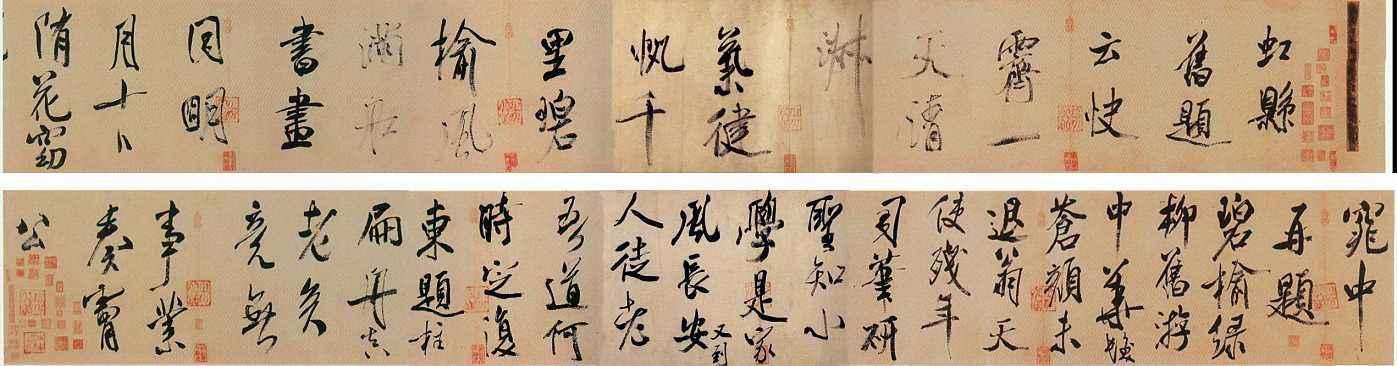 虹縣
舊題
云快
霽一
天清
淑
氣健
帆千
里碧
榆風
滿舟
書畫
同明
月十日
隋花窈
窕中
再題
碧榆綠
柳舊游
中華髮
蒼顏未
退翁天
使殘年
司筆研
聖知小
學是家
風長安又到
人徒老
吾道何
時定復
東題柱
扁舟真
老矣
竟無
事業
奏膚
公